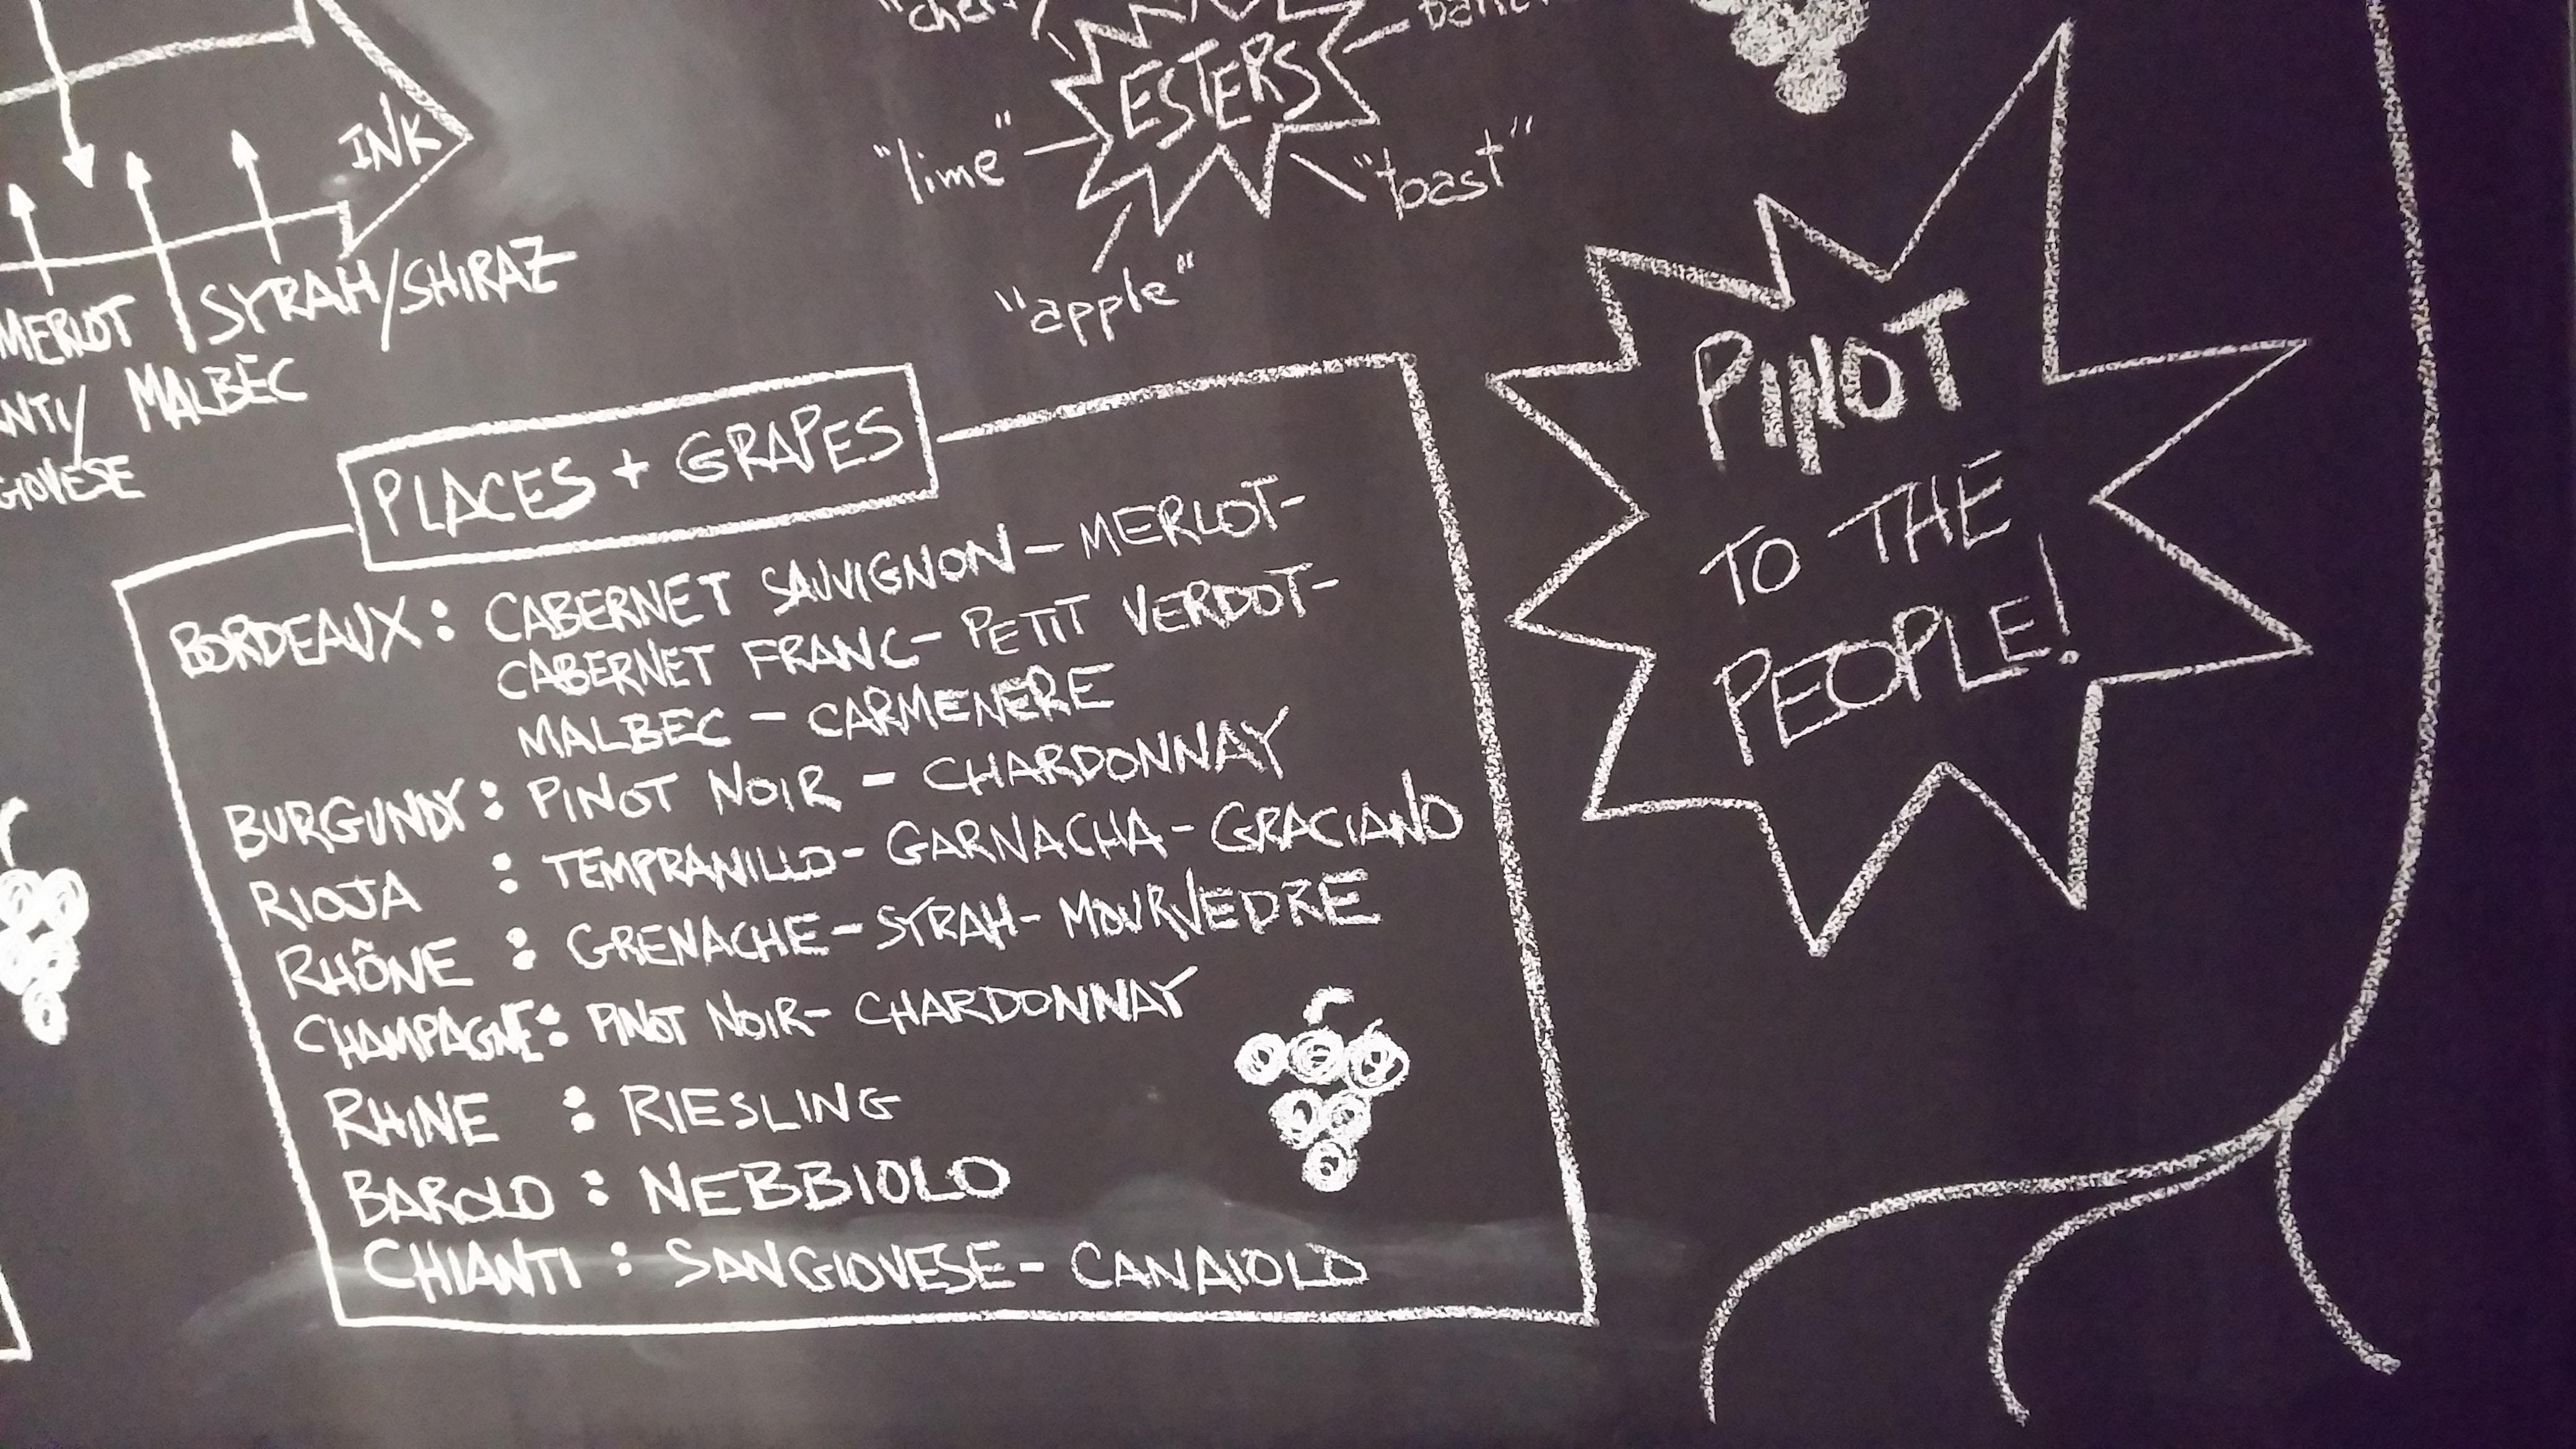 INK
MERLOT
SYRAH/SHIRAZ
MALBEC
ESTERS
"lime"
"toast"
"apple"
PLACES + GRAPES
BORDEAUX: CABERNET SAUVIGNON - MERLOT -
CABERNET FRANC - PETIT VERDOT -
MALBEC - CARMENERE
BURGUNDY: PINOT NOIR - CHARDONNAY
RIOJA : TEMPRANILLO - GARNACHA - GRACIANO
RHÔNE : GRENACHE - SYRAH - MOURVEDRE
CHAMPAGNE: PINOT NOIR - CHARDONNAY
RHINE : RIESLING
BAROLO : NEBBIOLO
CHIANTI : SANGIOVESE - CANAIOLO
PINOT
TO THE
PEOPLE!